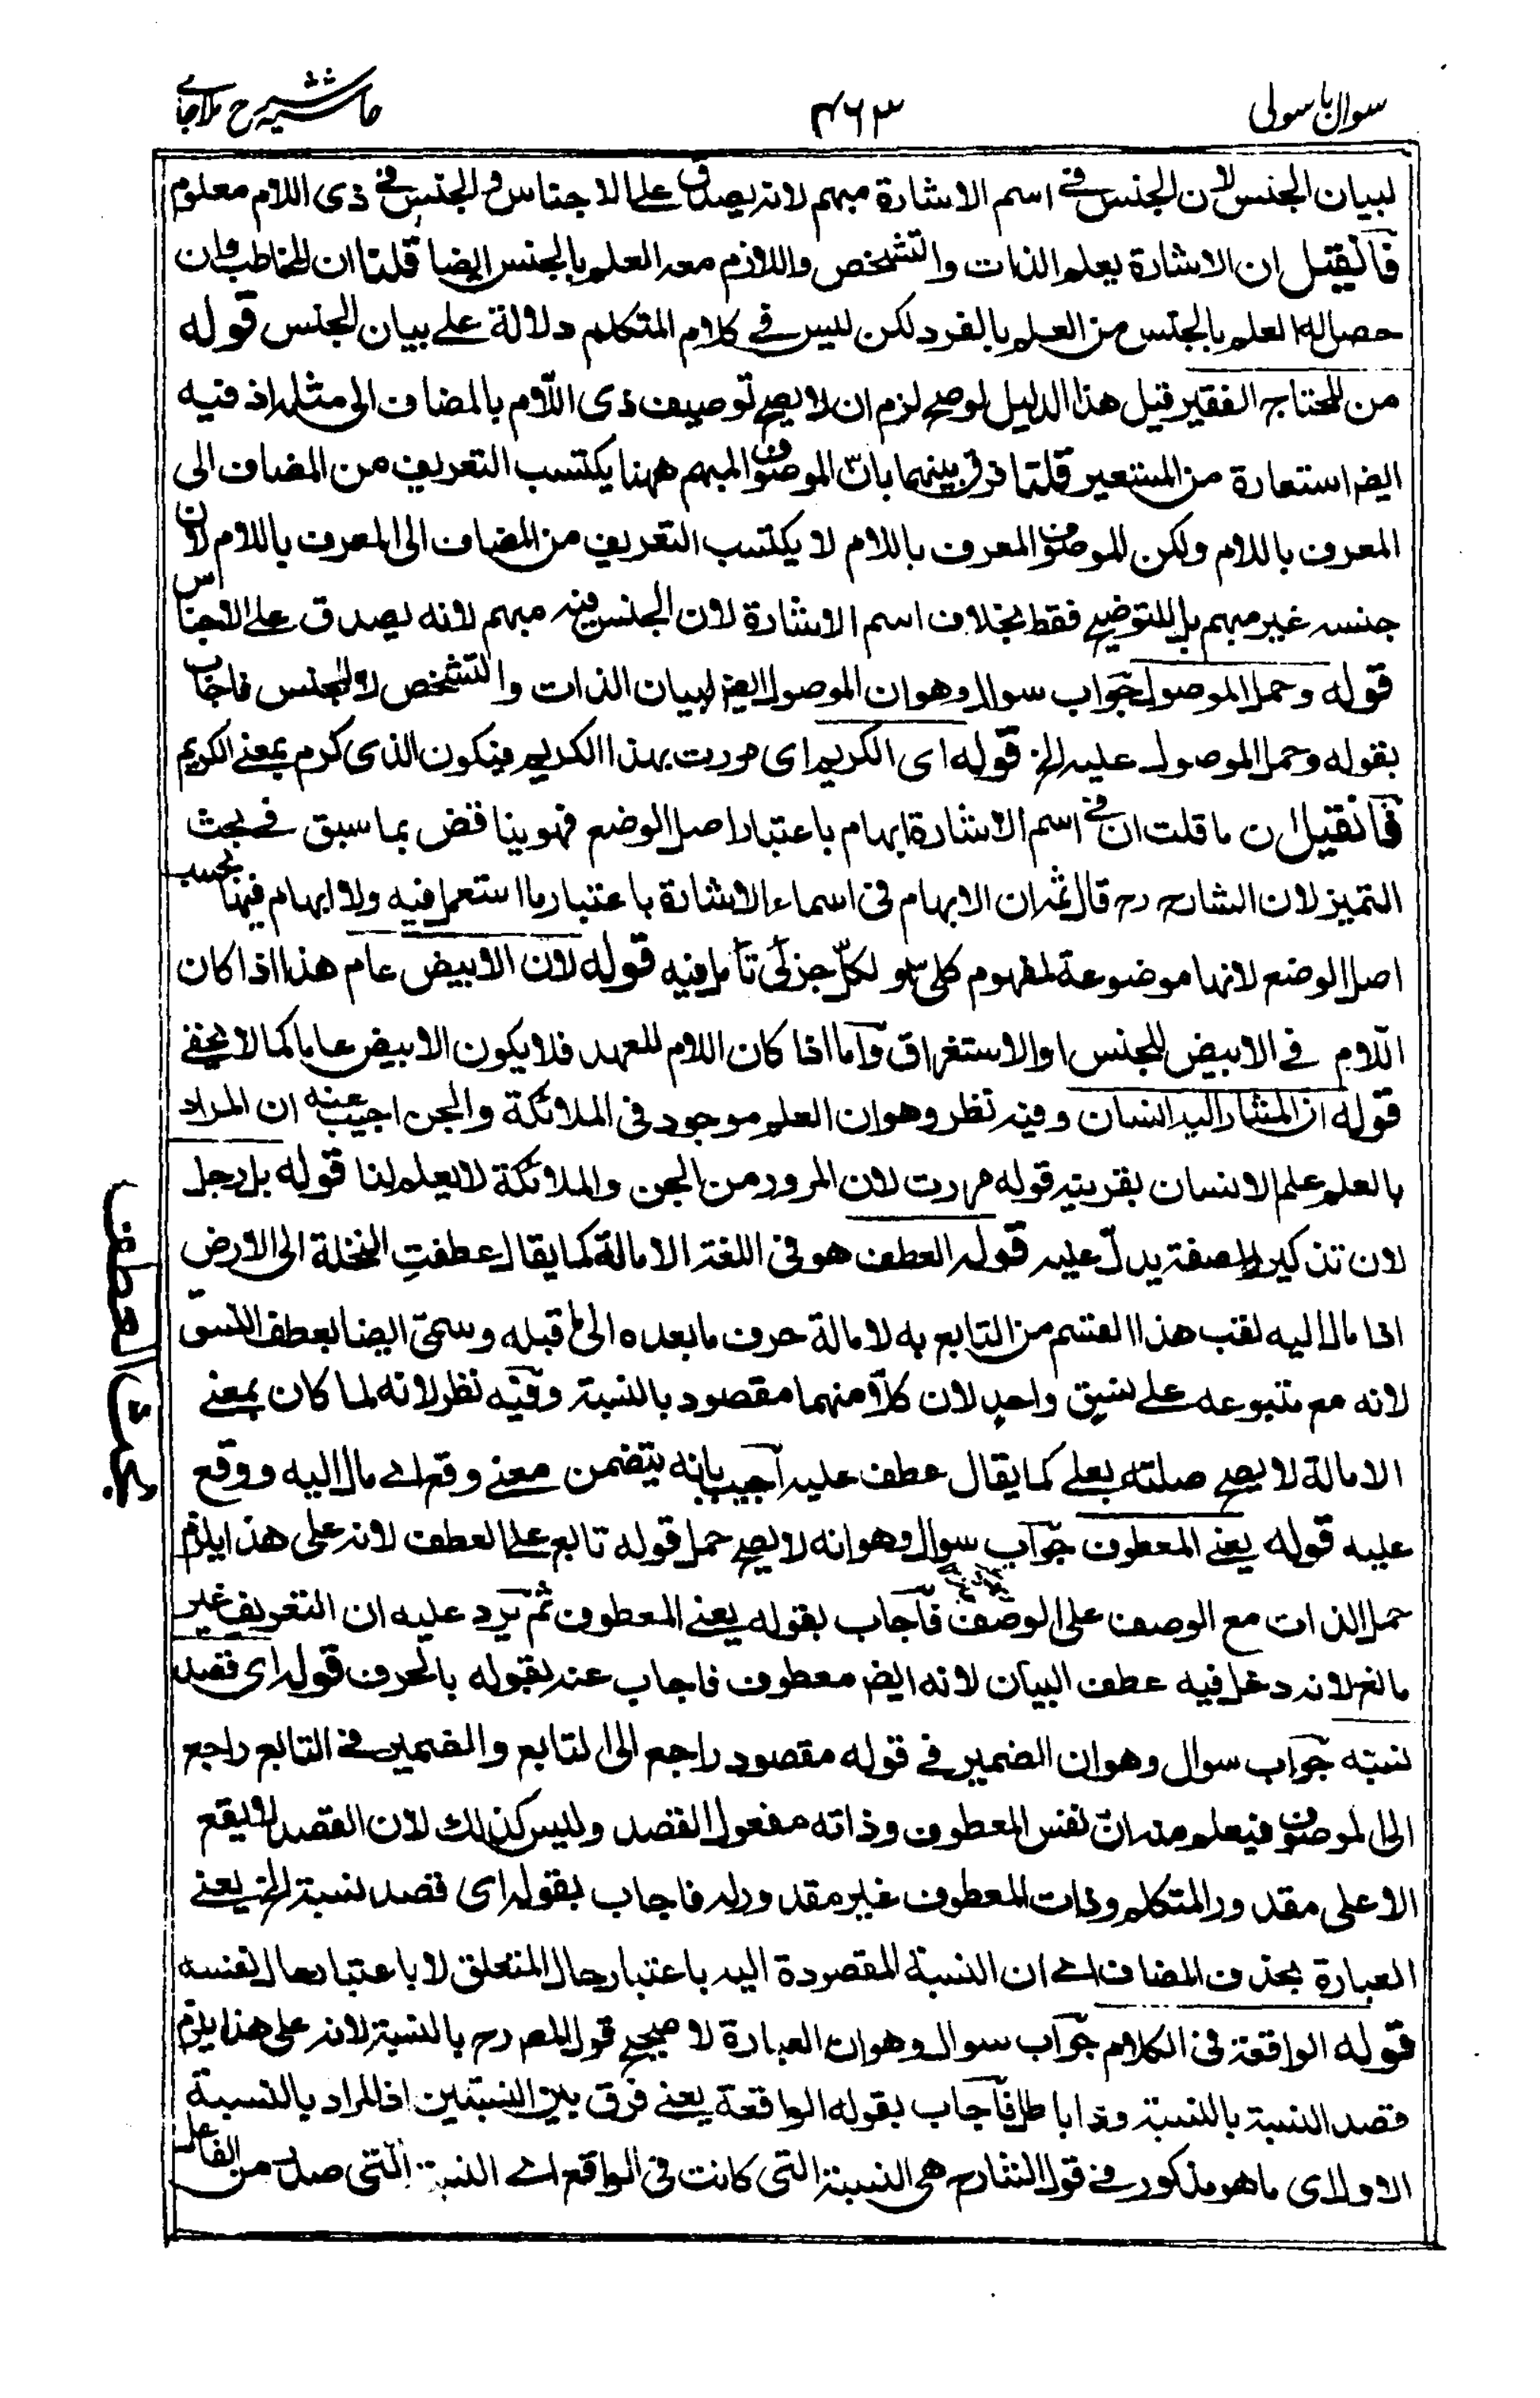 سوال باسولی
۴۶۳
حاشیه شرح ملا جامے
لبیان الجنس لان الجنس فے اسم الاشارة مبهم لانه یصدق علی الاجناس والجنس فے ذی اللام معلوم
فآن قیل ان الاشارة یعلم الذات والتشخص واللازم معه العلم بالجنس ایضا قلنا ان المخاطب وان
حصل له العلم بالجنس من العلم بالفرد لکن لیس فے کلام المتکلم دلالة علے بیان الجنس قوله
من المحتاج الفقیر قیل هذا الدلیل لو صح لزم ان لا یصح توصیف ذی اللام بالمضاف الی مثله اذ فیه
ایضا استعارة من المستعیر قلنا فرق بینهما بانّ الموصوف المبهم ههنا یکتسب التعریف من المضاف الی
المعرف باللام ولکن الموصوف المعرف باللام لا یکتسب التعریف من المضاف الی المعرف باللام لان
جنسه غیر مبهم بل للتوضیح فقط بخلاف اسم الاشارة لان الجنس فیه مبهم لانه یصدق علی الاجناس
قوله وحمل الموصول جواب سوال وهو ان الموصول ایضا لبیان الذات والتشخص لا الجنس فاجاب
بقوله وحمل الموصول علیه الخ قوله ای الکریم ای مررت بهذا الکریم فیکون الذی کرم بمعنے الکریم
فآن قیل ان ما قلت ان فے اسم الاشارة ابهام باعتبار اصل الوضع فهو یناقض بما سبق فے بحث
التمیز لان الشارح رح قال ثمه ان الابهام فی اسماء الاشارة باعتبار ما استعمل فیه ولا ابهام فیها بحسب
اصل الوضع لانها موضوعة لمفهوم کلی او لکلّ جزئی تأمل فیه قوله لان الابیض عام هذا اذا کان
اللام فے الابیض للجنس او الاستغراق وآما اذا کان اللام للعهد فلا یکون الابیض عاما کما لا یخفے
قوله ان المشار الیه انسان وفیه نظر وهو ان العلم موجود فی الملائکة والجن اجیب عنه ان المراد
بالعلم علم الانسان بقرینة قوله مررت لان المرور من الجن والملائکة لا یعلم لنا قوله بل رجل
لان تذکیر الصفة یدلّ علیه قوله العطف هو فی اللغة الامالة کما یقال عطفتِ النخلة الی الارض
اذا مال الیه لقب هذا القسم من التابع به لامالة حرف ما بعده الی ما قبله وسمی ایضا بعطف النسق
لانه مع متبوعه علے نسق واحد لان کلّا منهما مقصود بالنسبة وفیه نظر لانه لما کان بمعنے
الامالة لا یصح صلته بعلے کما یقال عطف علیه آجیب بانه یتضمن معنے وقع اے مال الیه ووقع
علیه قوله یعنے المعطوف جوآب سوال وهو انه لا یصح حمل قوله تابع علے العطف لانه علی هذا یلزم
حمل الذات مع الوصف علی الوصف فآجاب بقوله یعنے المعطوف ثم یرد علیه ان التعریف غیر
مانع لانه دخل فیه عطف البیان لانه ایضا معطوف فاجاب عنه بقوله بالحرف قوله ای قصد
نسبته جوآب سوال وهو ان الضمیر فے قوله مقصود راجع الی التابع والضمیر فے التابع راجع
الی الموصوف فیعلم منه انّ نفس المعطوف وذاته مفعول القصد ولیس کذلک لان القصد لا یقع
الا علی مقدور المتکلم وذات المعطوف غیر مقدور له فاجاب بقوله ای قصد نسبته الخ یعنے
العبارة بحذف المضاف اے ان النسبة المقصودة الیه باعتبار حال المتعلق لا باعتبار حال نفسه
قوله الواقعة فی الکلام جوآب سوال وهو ان العبارة لا صحیح قول المص رح بالنسبة لانه علی هذا یلزم
قصد النسبة بالنسبة وهذا باطل فآجاب بقوله الواقعة یعنے فرق بین النسبتین اذ المراد بالنسبة
الاولی ای ما هو مذکور فے قول الشارح هی النسبة التی کانت فی الواقع اے النسبة التی صدر من الفاعل
بحث العطف